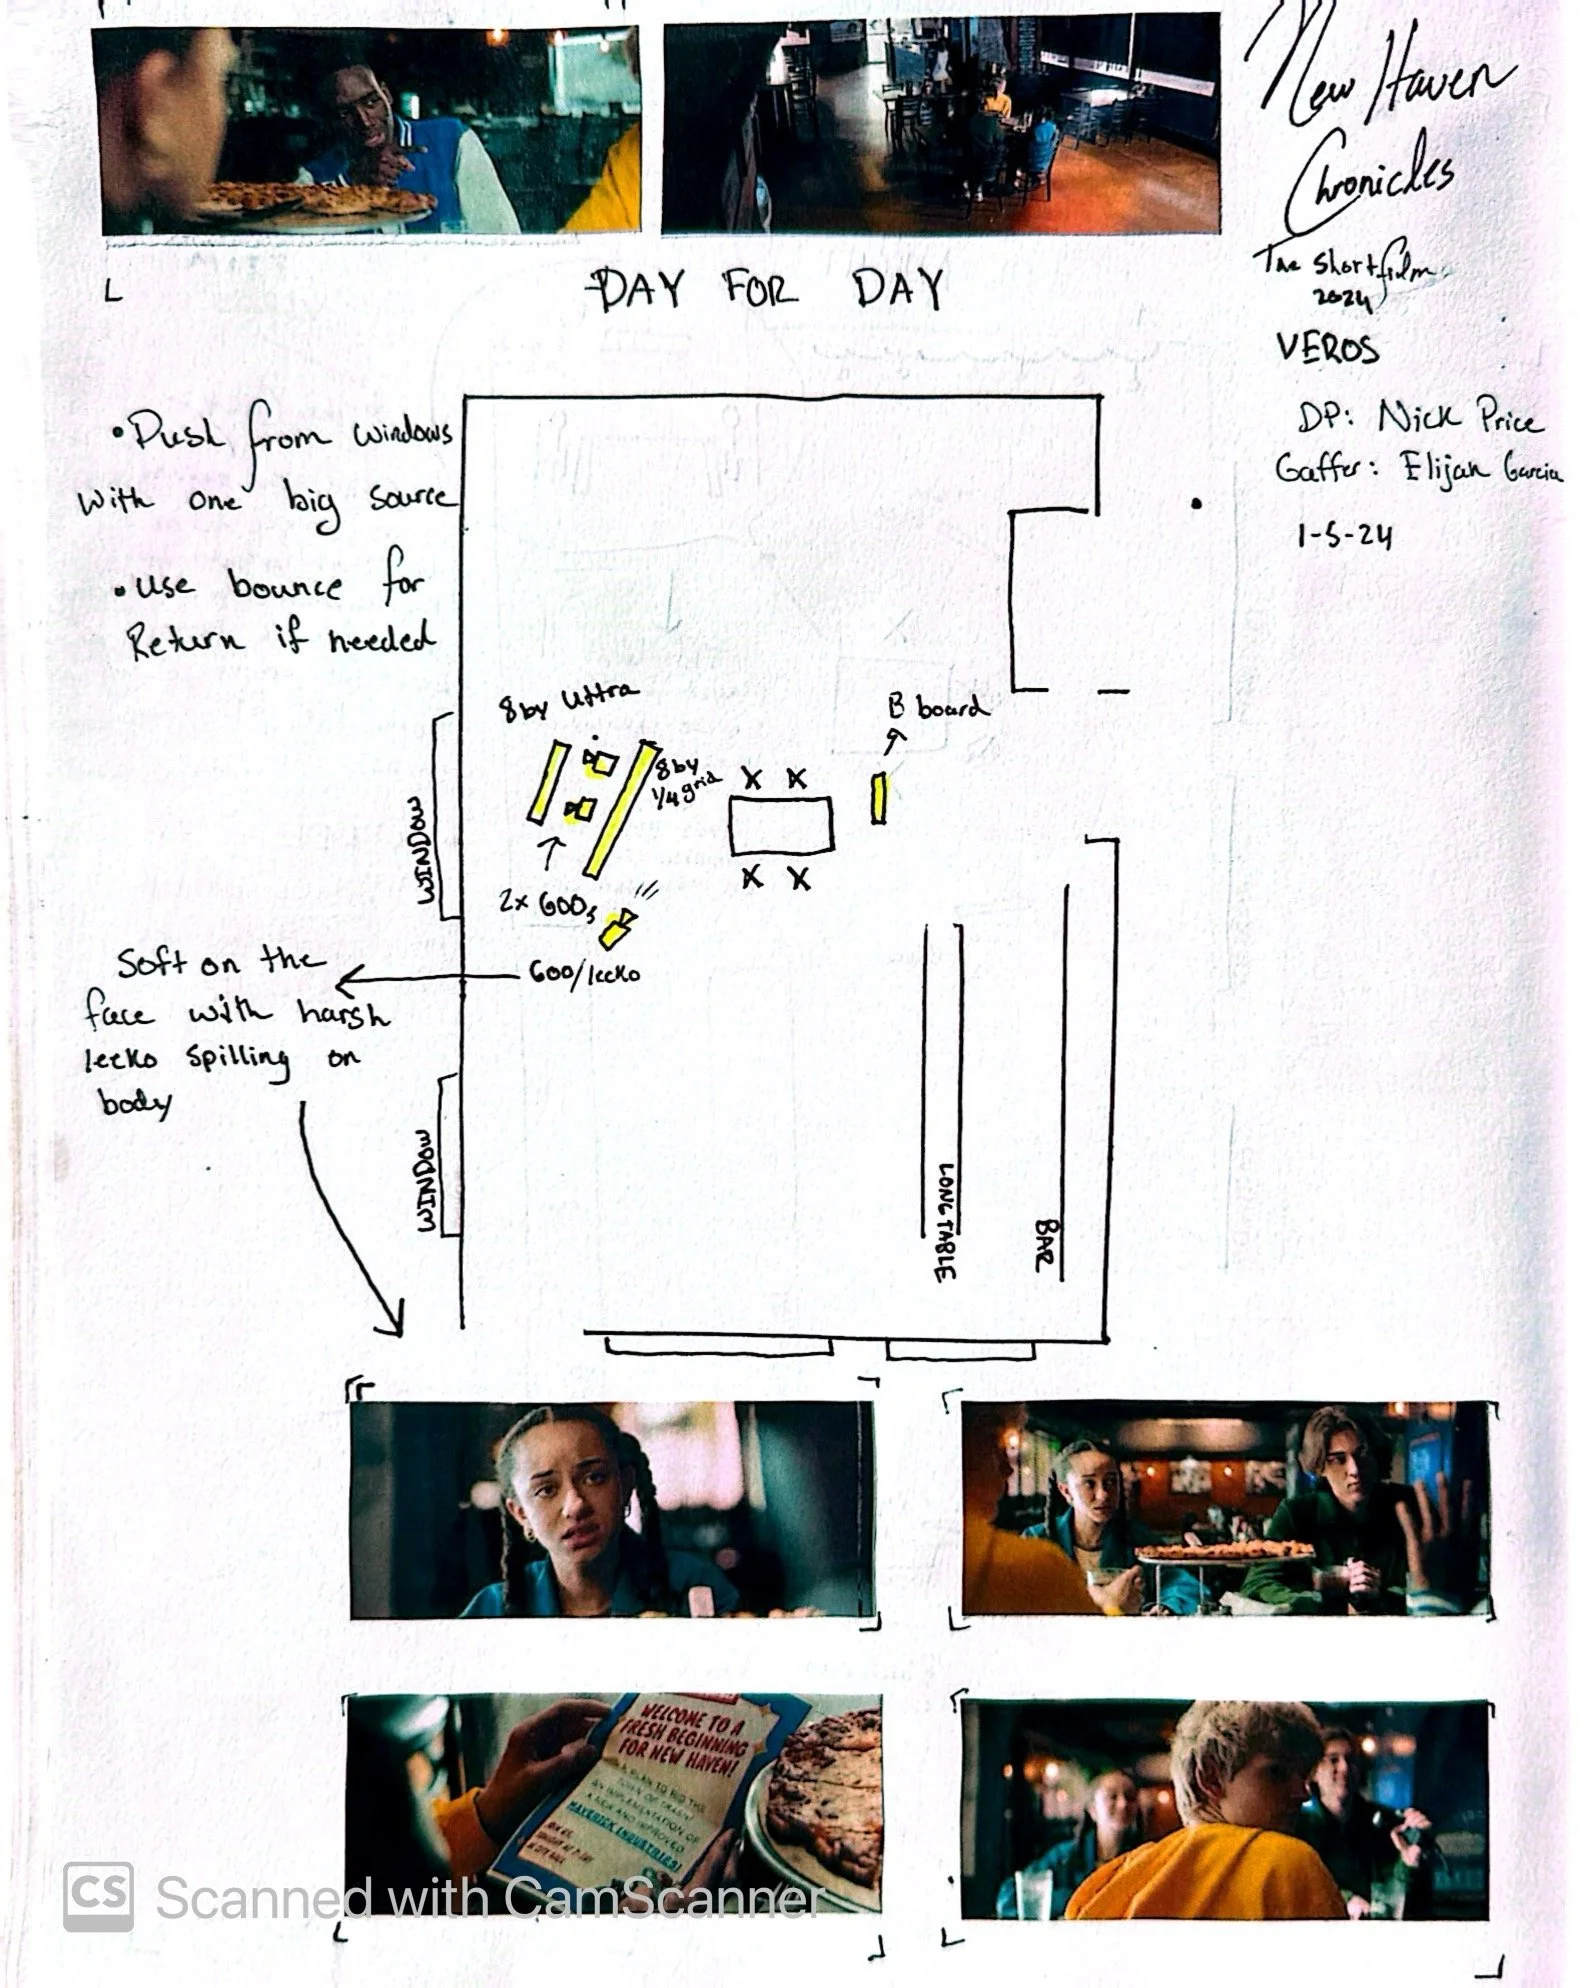 New Haven
Chronicles
The Shortfilm
2024
VEROS
DP: Nick Price
Gaffer: Elijah Garcia
1-5-24
DAY FOR DAY
• Push from windows
with one big source
• Use bounce for
Return if needed
8by Ultra
8by
1/4 grid
B board
2x 600s
600/lecko
WINDOW
Soft on the
face with harsh
lecko spilling on
body
WINDOW
LONG TABLE
BAR
WELCOME TO A
FRESH BEGINNING
FOR NEW HAVEN!
A PLAN TO RID THE
TOWN OF
AN IMPLEMENTATION OF
A NEW AND IMPROVED
MAVERICK INDUSTRIES!
CS Scanned with CamScanner